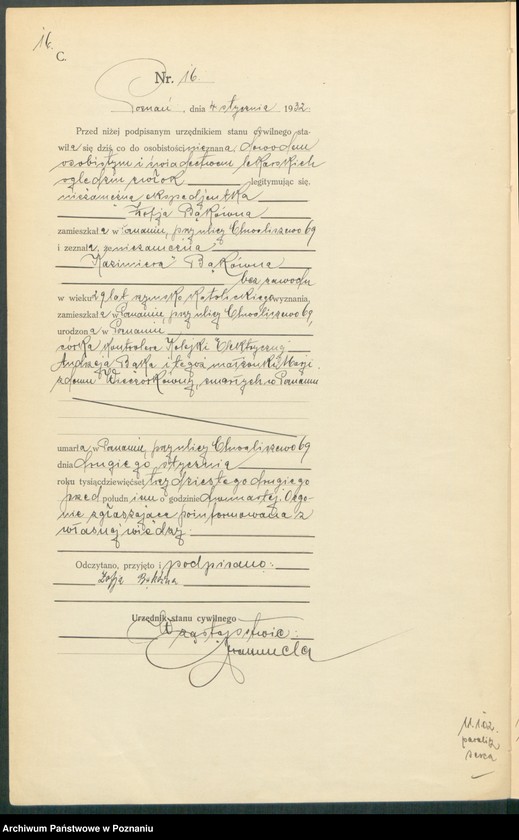 16.
C.
Nr. 16.
Poznań, dnia 4 stycznia 1932.
Przed niżej podpisanym urzędnikiem stanu cywilnego sta-
wiła się dziś, co do osobistości nieznana, dowodem
osobistym i świadectwem lekarskich
oględzin zwłok legitymując się,
niezamężna ekspedjentka
Zofja Bąkówna
zamieszkała w Poznaniu, przy ulicy Chwaliszewo 69
i zeznała, że niezamężna
Kazimiera Bąkówna
bez zawodu
w wieku lat rzymsko katolickiego wyznania,
zamieszkała w Poznaniu, przy ulicy Chwaliszewo 69,
urodzona w Poznaniu
córka kontrolera Kolejki Elektrycznej
Andrzeja Bąka i tegoż małżonki Marji
z domu Wieczorkówny, zmarłych w Poznaniu
umarła w Poznaniu, przy ulicy Chwaliszewo 69
dnia drugiego stycznia
roku tysiącdziewięćset trzydziestego drugiego
przed południem o godzinie dwunastej. O zgo-
nie zgłaszająca poinformowana z
własnej wiedzy.
Odczytano, przyjęto i podpisano:
Zofja Bąkówna
Urzędnik stanu cywilnego
W zastępstwie:
11. 122.
paraliż
serca
Archiwum Państwowe w Poznaniu